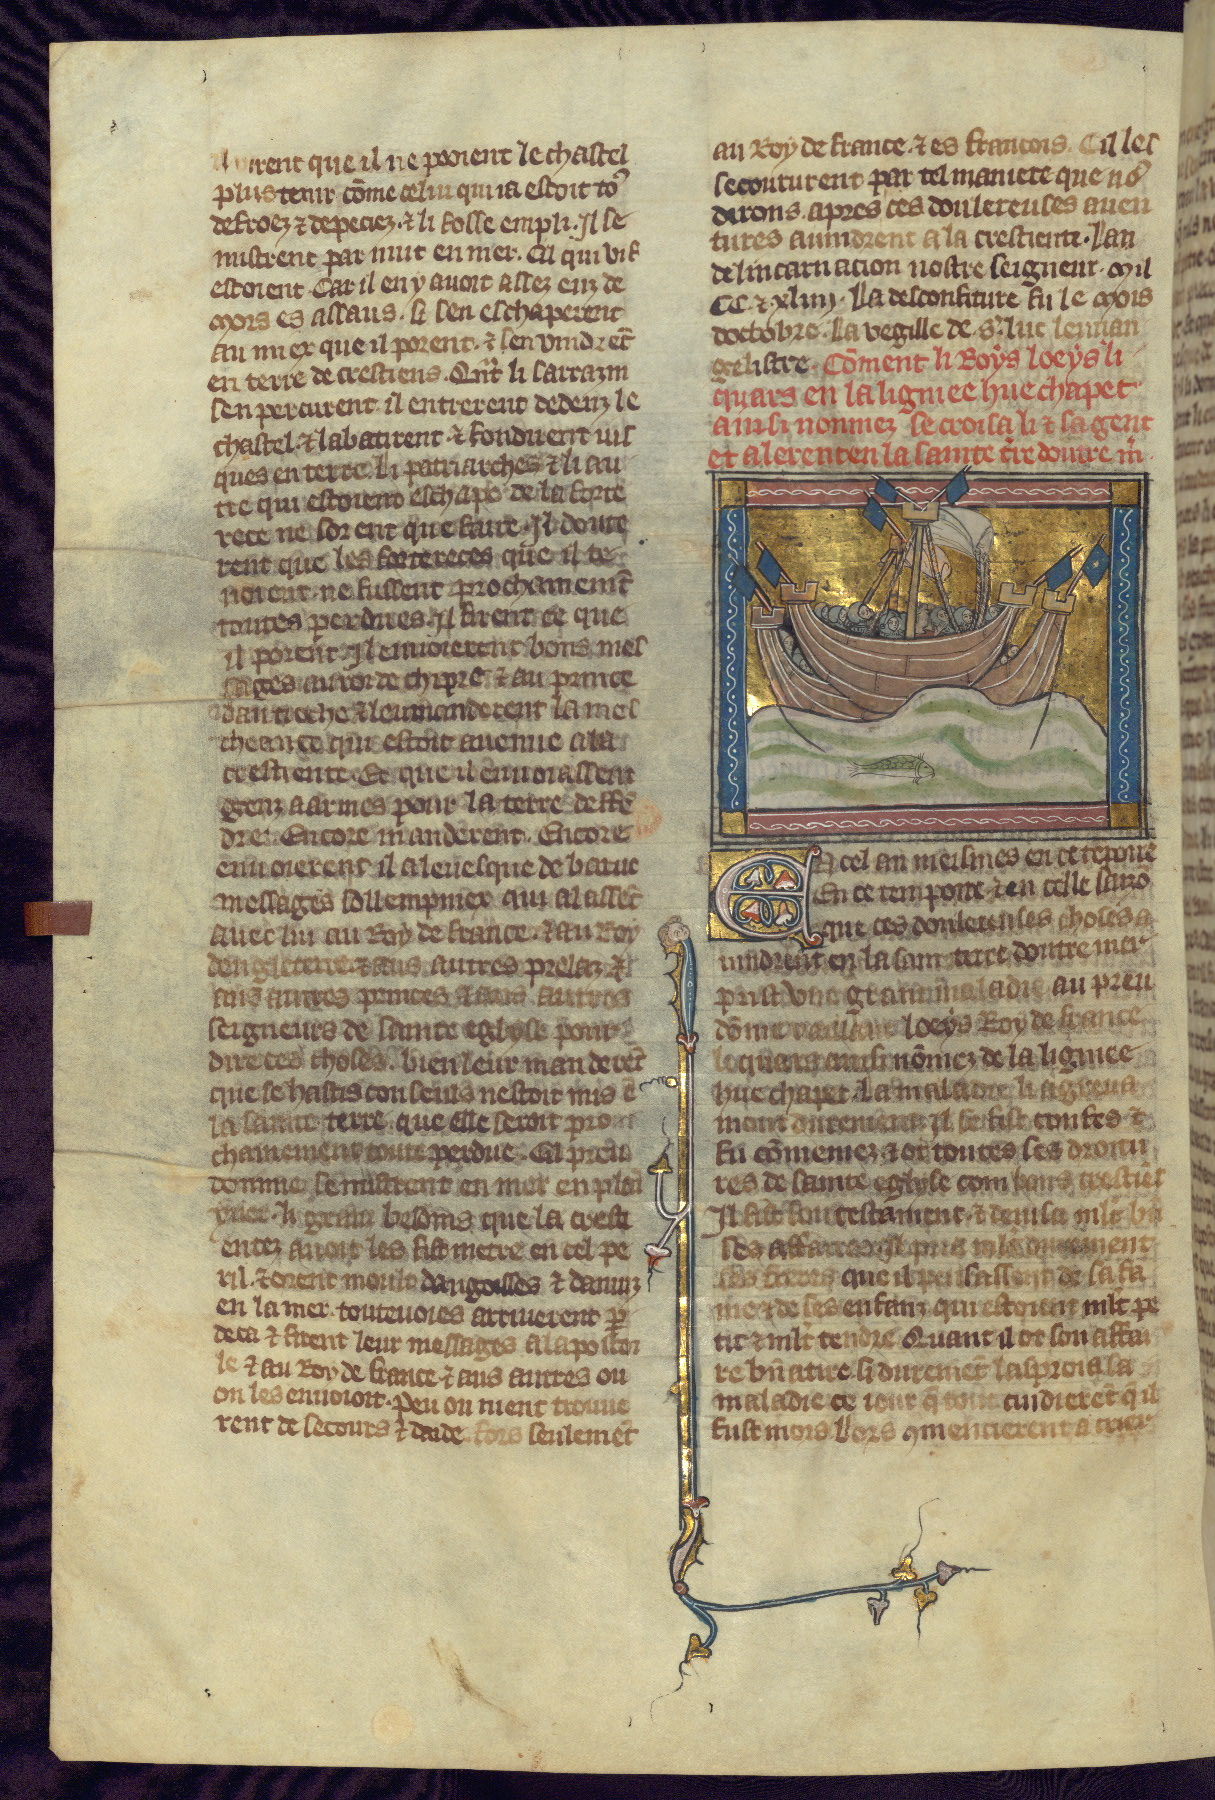 virent que il ne pooient le chastel
plus tenir cōme celui qui ia estoit to⁹
defroez ⁊ depeciez. ⁊ li fosse empli. Il se
mistrent par nuit en mer. Cil qui vif
estoient. Car il en y auoit assez eus de
mors es assaus. si sen eschaperent
au miex que il porent. ⁊ sen vindrēt
en terre de crestiens. Qn̄t li sarrazin
sen percurent. il entrerent dedenz le
chastel. ⁊ labatirent. ⁊ fondirent ius
ques en terre. Li patriarches ⁊ li au
tre qui estoient eschape de la forte
rece ne sorent que faire. Il doute
rent que les fortereces que il te
noient ne fussent prochainemēt
toutes perdues. Il firent ce que
il porent. Il enuoierent bons mes
sages au roi de chipre. ⁊ au prince
dantioche ⁊ leur manderent la mes
cheance qui estoit auenue a la
crestiente. Et que il enuoiassent
genz a armes pour la terre deffē
dre. Encore manderent. Encore
enuoierent il a leuesque de barut
messages sollempniex qui alassēt
auec lui au Roy de france. ⁊ au Roy
dengleterre ⁊ aus autres prelaz ⁊
aus autres princes ⁊ aus autres
seigneurs de sainte eglyse pour
dire ces choses. bien leur manderēt
que se hastis conseuls nestoit mis ē
la sainte terre que elle seroit pro
chainement toute perdue. Cil preu
domme se mistrent en mer en plain
yuer. li grant besoins que la cresti
entez auoit les fist metre en cel pe
ril. ⁊ orent moult dangoisses ⁊ danuiz
en la mer. touteuoies arriuerent p̄
deca ⁊ firent leur messages a lapostoi
le ⁊ au Roy de france ⁊ aus autres ou
on les enuoioit. Peu ou nient trouue
rent de secours ⁊ daide fors seulemēt
au Roy de france. ⁊ es francois. Cil les
secoururent par tel maniere que no⁹
dirons. apres ces doulereuses auen
tures auindrent a la crestiente. Lan
de lincarnacion nostre seigneur. mil
CC. ⁊ xliiij. La desconfiture fu le mois
doctobre. La vegille de .s. luc leuuan
geliste. Cōment li Roys loeys li
quars en la ligniee hue chapet
ainsi nonmez se croisa li ⁊ sa gent
et alerent en la sainte t̄re doutre m̄
En cel an meismes en ce tēpoire
En ce tempoire ⁊ en celle saizō
que ces doulereuses choses a
uindrent en la sainte terre doutre mer
prist vne grant maladie au preu
dōme vaillant loeys Roy de france
le quart ainsi nōmez de la ligniee
hue chapet. La maladie li agreua
mout durement. il se fist confes ⁊
fu cōmeniez ⁊ ot toutes ses droitu
res de sainte eglyse com bons crestiēs
Il fist son testament ⁊ deuisa ml̄t bn̄
ses affaires. Il pria ml̄t doucement
ses freres que il pensassent de sa fa
me ⁊ de ses enfanz qui estoient ml̄t pe
tit ⁊ ml̄t tendre. Quant il ot son affai
re bn̄ atire si duremēt lasproia la
maladie ce iour q̄ tout cuidierēt q̄ il
fust mors. Lors ꝯmencierent a crier